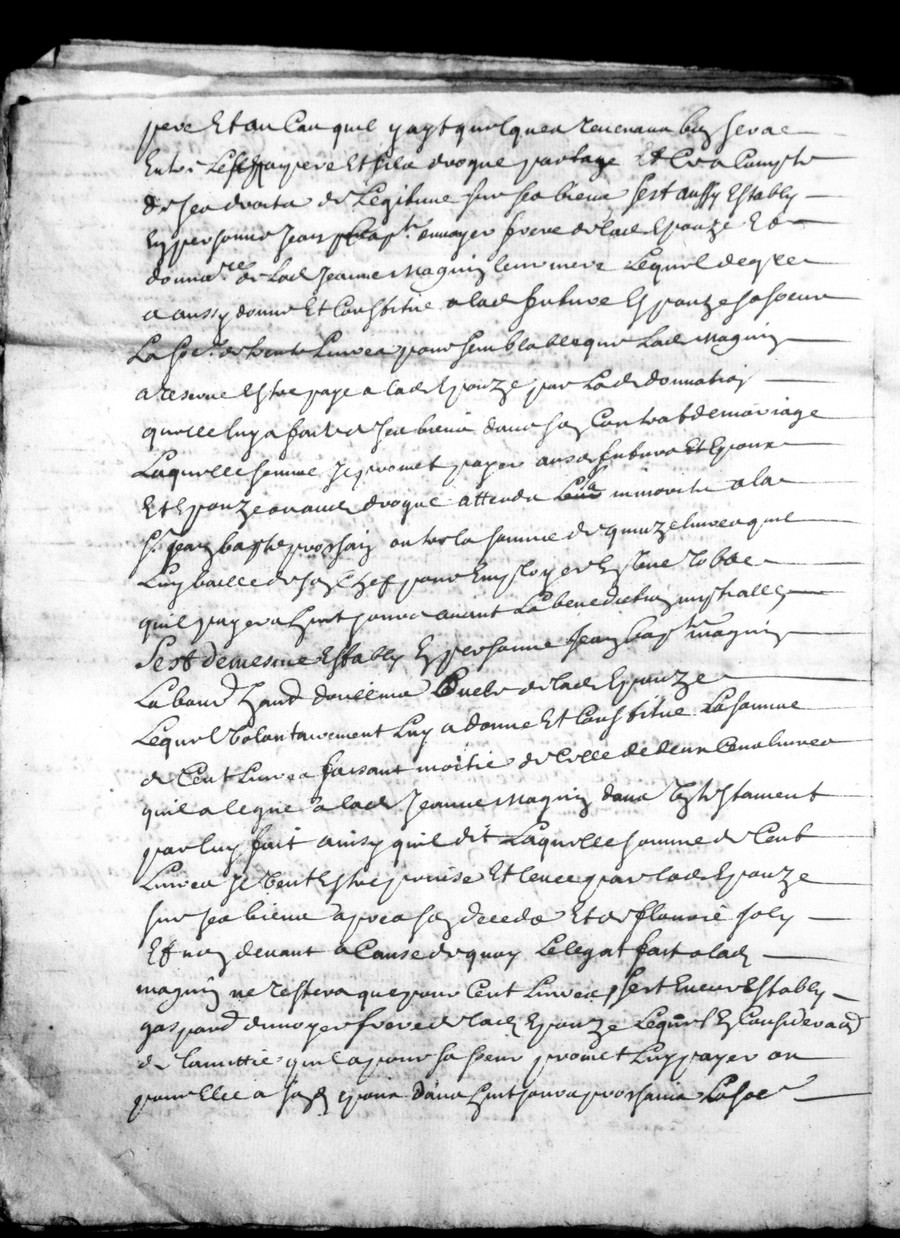 pere Et au Cas quil y ayt quelques revenans bez serae
Entre Lesd pere Et fils drogue partage Et Ce a Compte
de ses droits de Legitime sur ses biens sest aussy Estably
En personne Jean bapte dunoyer frere de lad Epouze Et
donnare de Lad Jeanne Magnin leur mere Lequel de gre
a aussy donne Et Constitue a lad future Epouze sa soeur
La soe de trente Livres pour semblable que Lad Magnin
a reserve Estre paye a lad Epouze par Lad donnation
quelle luy a faitte de ses biens dans son Contrat de mariage
Laquelle somme Je promet payer ausd futurs Et Epoux
Et Epouze avant drogue attendu sa minorite a la
St Jean baptiste prochain outre la somme de quinze livres que
Luy baille de son Chef pour Employer En une robbe
quil payera huit jours avant La benediction nuptialle
Sest de mesme Estably En personne Jean bapte magnin
Labourd oncle de lad Epouze
Lequel Volontairement Luy a donne Et Constitue La somme
de Cent Livres faisant moitie de Celle de deux Cens livres
quil a legue a lad Jeanne Magnin dans testament
par luy fait ainsy quil dit Laquelle somme de Cent
Livres Je veut Estre prinse Et levee par lad Epouze
sur ses biens apres son deceds Et de joly
Et non devant a Cause de quoy Le legat fait a lad
magnin ne restera que pour Cent Livres sest Encor Estably
gaspard dunoyer frere de lad Epouze Lequel En Consideraon
de lamittie quil a pour sa soeur promet Luy payer ou
pour Elle a sond Epoux dans huit jours prochains La soe